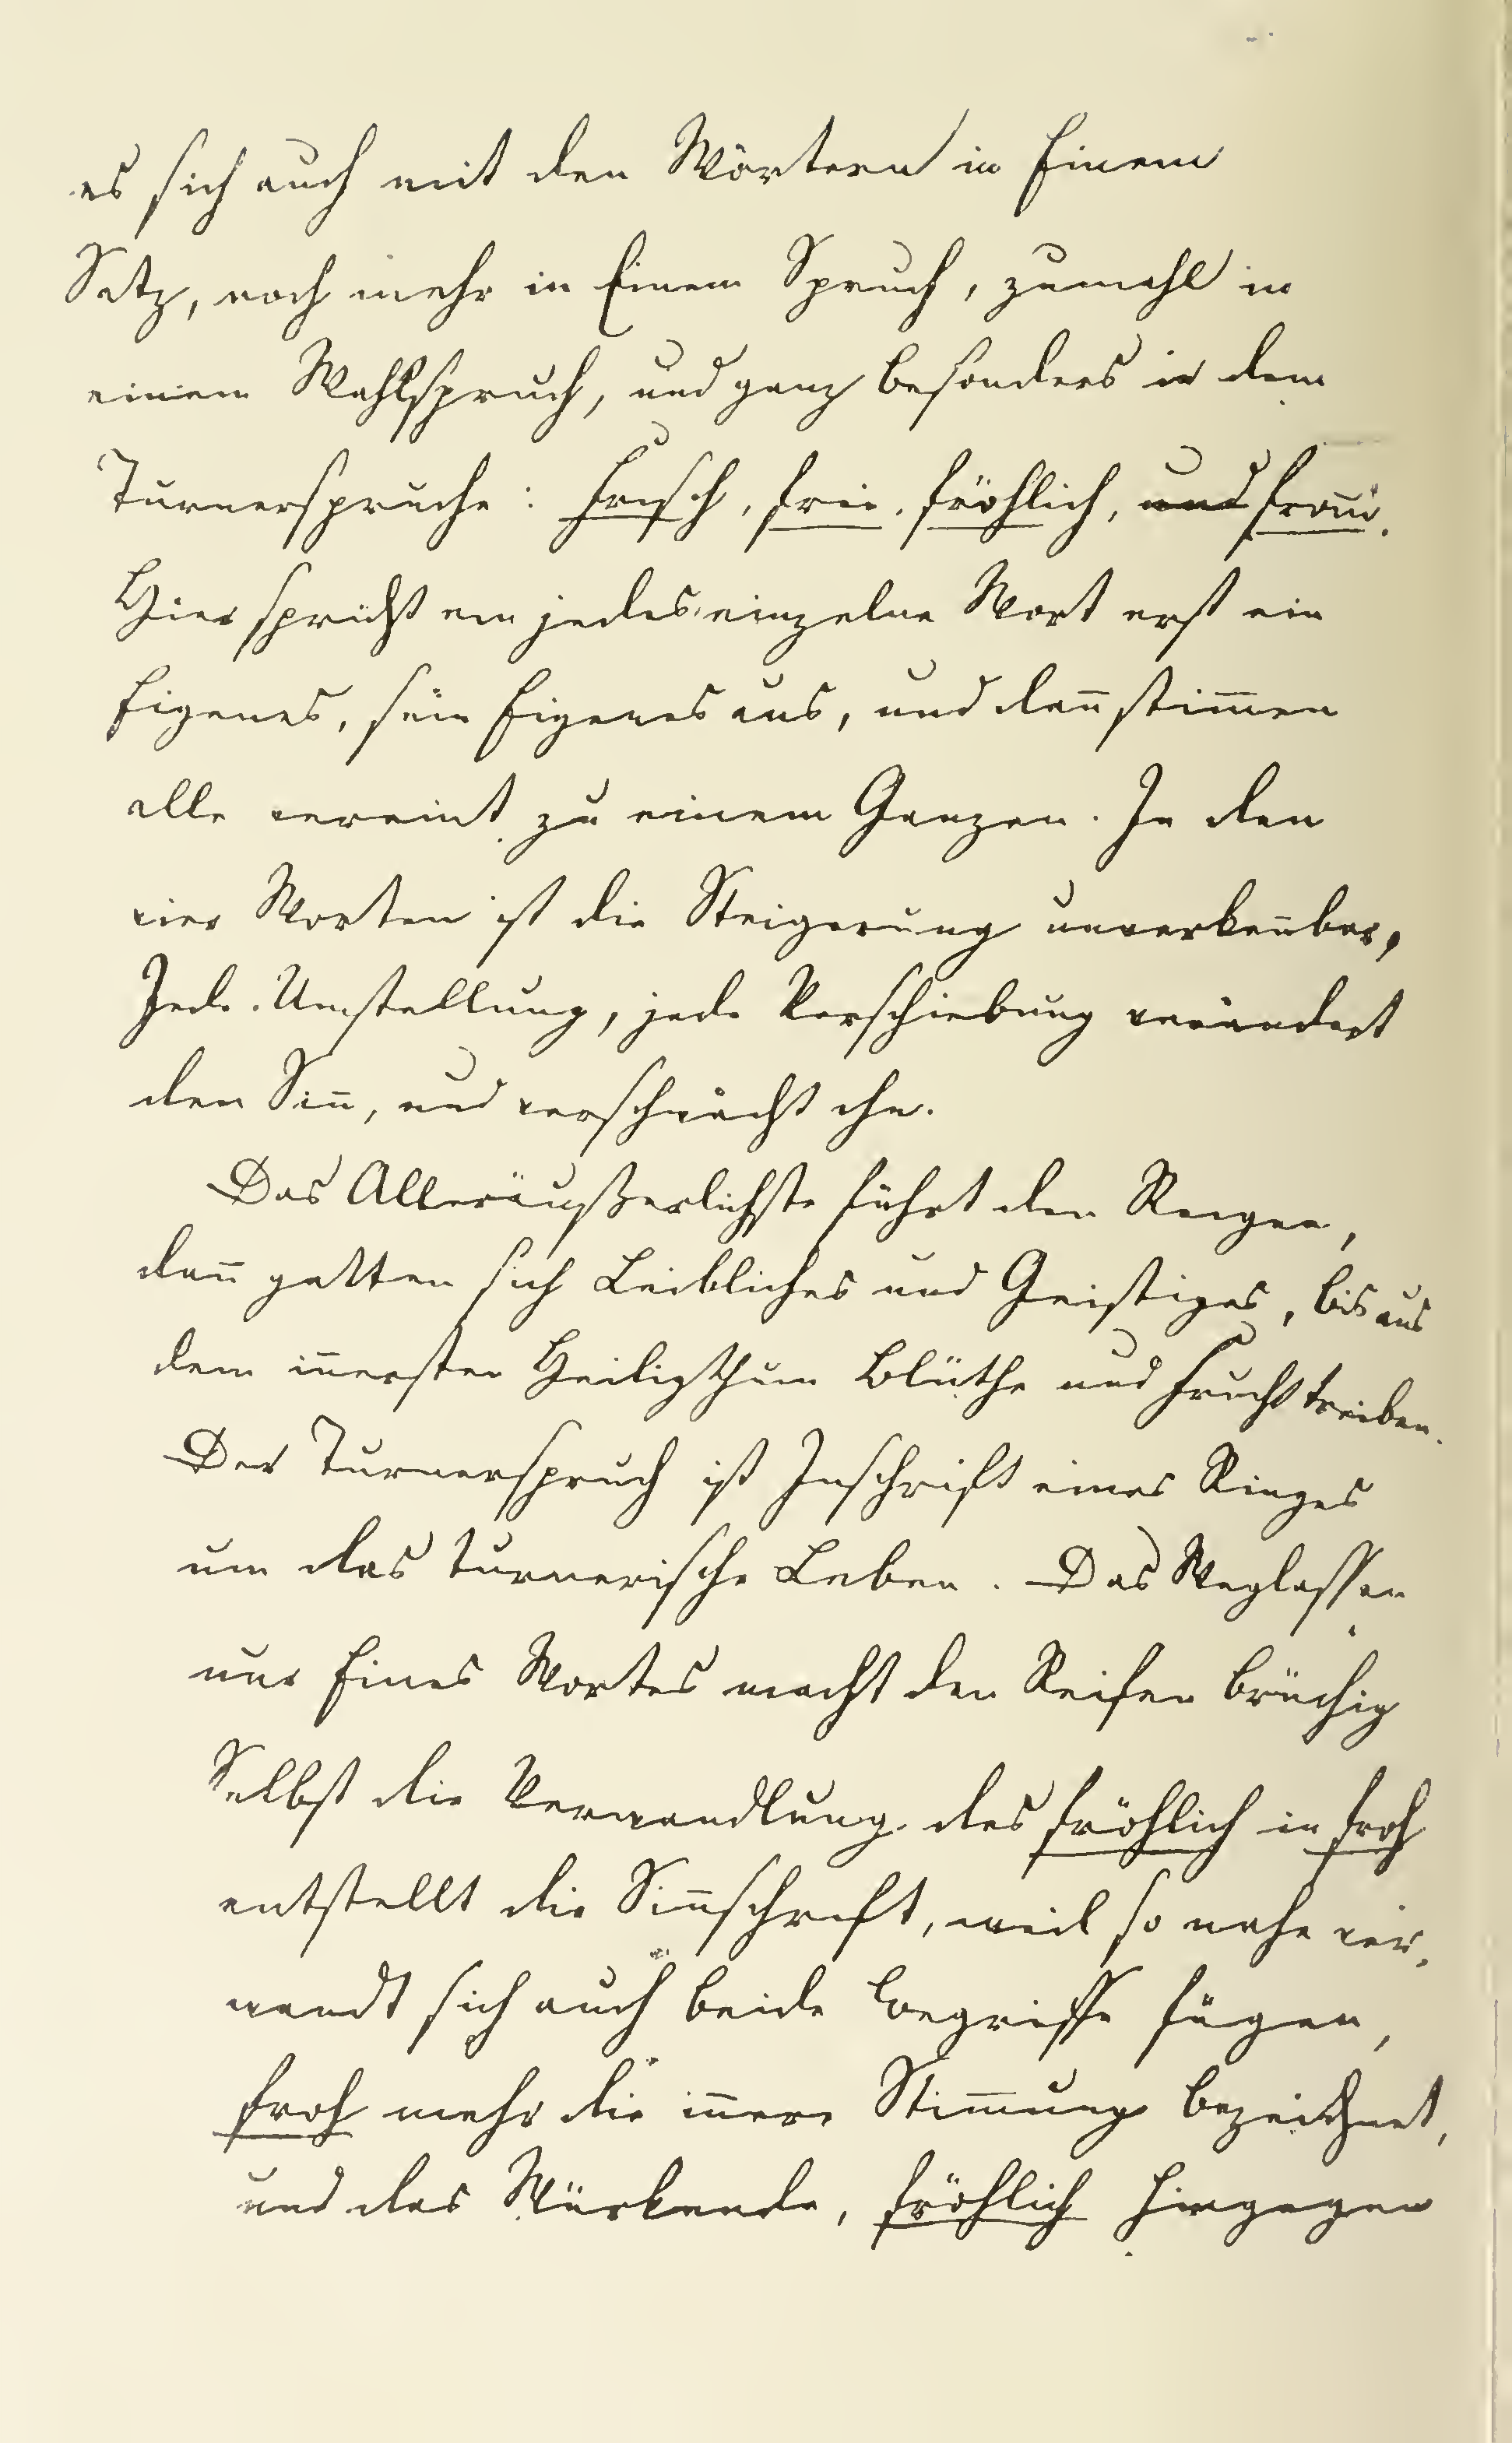 es sich auch mit den Wörtern in Einem
Satz, noch mehr in Einem Spruch, zumahl in
einem Wahlspruch, und ganz besonders in dem
Turnerspruche: frisch, frei, fröhlich, ~~und~~ from̅.
Hier spricht ein jedes einzelne Wort erst ein
Eigenes, sein Eigenes aus, und dan̅ stim̅en
alle vereint zu einem Ganzen. In den
vier Worten ist die Steigerung unverken̅bar,
Jede Umstellung, jede Verschiebung verändert
den Sin̅, und verschwächt ihn.
Das Alleräußerlichste führt den Reigen,
dan̅ gatten sich Leibliches und Geistiges, bis aus
dem in̅ersten Heiligthum Blüthe und Frucht treiben.
Der Turnerspruch ist Inschrift eines Ringes
um das turnerische Leben. Das Weglassen
nur Eines Wortes macht den Reifen brüchig
Selbst die Verwandlung des fröhlich in froh
entstellt die Sin̅schrift, weil so nahe ver-
wandt sich auch beide Begriffe fügen,
froh mehr die in̅ere Stim̅ung bezeichnet,
und das Würkende, fröhlich hingegen